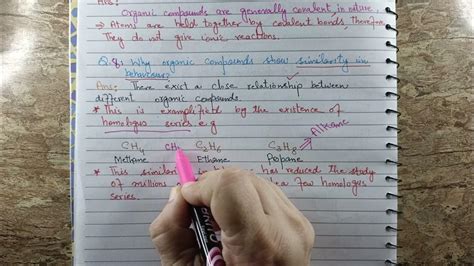 Ans:
Organic compounds are generally covalent in nature.
→ Atoms are held together by covalent bonds, Therefore,
They do not give ionic reactions.
Q.8: Why organic compounds show similarity in
behaviour?
Ans: There exist a close relationship between
different organic compounds.
* This is exemplified by the existence of
homologus series e.g
CH4 CH C2H6 C3H8 ⇒ Alkane
Methane Ethane Propane
* This similarity in has reduced the study
of millions a few homologus
series.